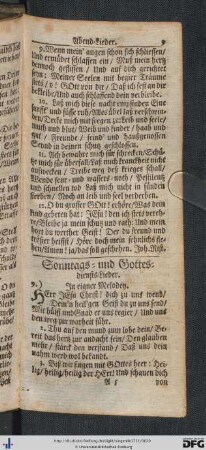 Abend-Lieder. 9
9. Wenn mein' augen schon sich schliessen/
Und ermüdet schlaffen ein / Muß mein hertz
dennoch geflissen / Und auf dich gerichtet
seyn: Meiner Seelen mit begier Träume
stets / o! GOtt von dir / Daß ich fest an dir
bekleibe/ Und auch schlaffend dein verbleibe.
10. Laß mich diese nacht empfinden Eine
sanfft- und süsse ruh/Alles übel laß verschwin-
den/Decke mich mit segen zu:Leib und seele/
muth und blut/ Weib und kinder / haab und
gut / Freunde / feind' und haußgenossen
Seynd in deinen schutz geschlossen.
11. Ach bewahre mich für schrecken/Schü-
tze mich für überfall/Laß mich kranckheit nicht
aufwecken / Treibe weg deß krieges schall/
Wende feur- und wassers- noth / Pestilentz
und schnellen tod/ Laß mich nicht in sünden
sterben/ Noch an leib und seel verderben.
12. O du grosser GOtt! erhöre/Was dein
kind gebeten hat: JEsu! den ich stets verehre/
Bleibe ja mein schutz und rath/ Und mein
hort du werther Geist/ Der du freund und
tröster heissest/ Höre doch mein sehnlichs fle-
hen/Amen! ja/das soll geschehen. Joh. Rist.
Sonntags- und Gottes-
diensts-Lieder.
In eigner Melodey.
HErr JEsu Christ! dich zu uns wend/
Dein'n heil'gen Geist du zu uns send/
Mit hülff und gnad er uns regier/ Und uns
den weg zur warheit führ.
2. Thu auf den mund zum lobe dein/ Be-
reit das hertz zur andacht fein/ Den glauben
mehr/ stärck den verstand/ Daß uns dein
nahm werd wol bekandt.
3. Biß wir singen mit GOttes heer: Hei-
lig/ heilig/ heilig ist GOtt der HErr! Und schauen dich
A 5 von